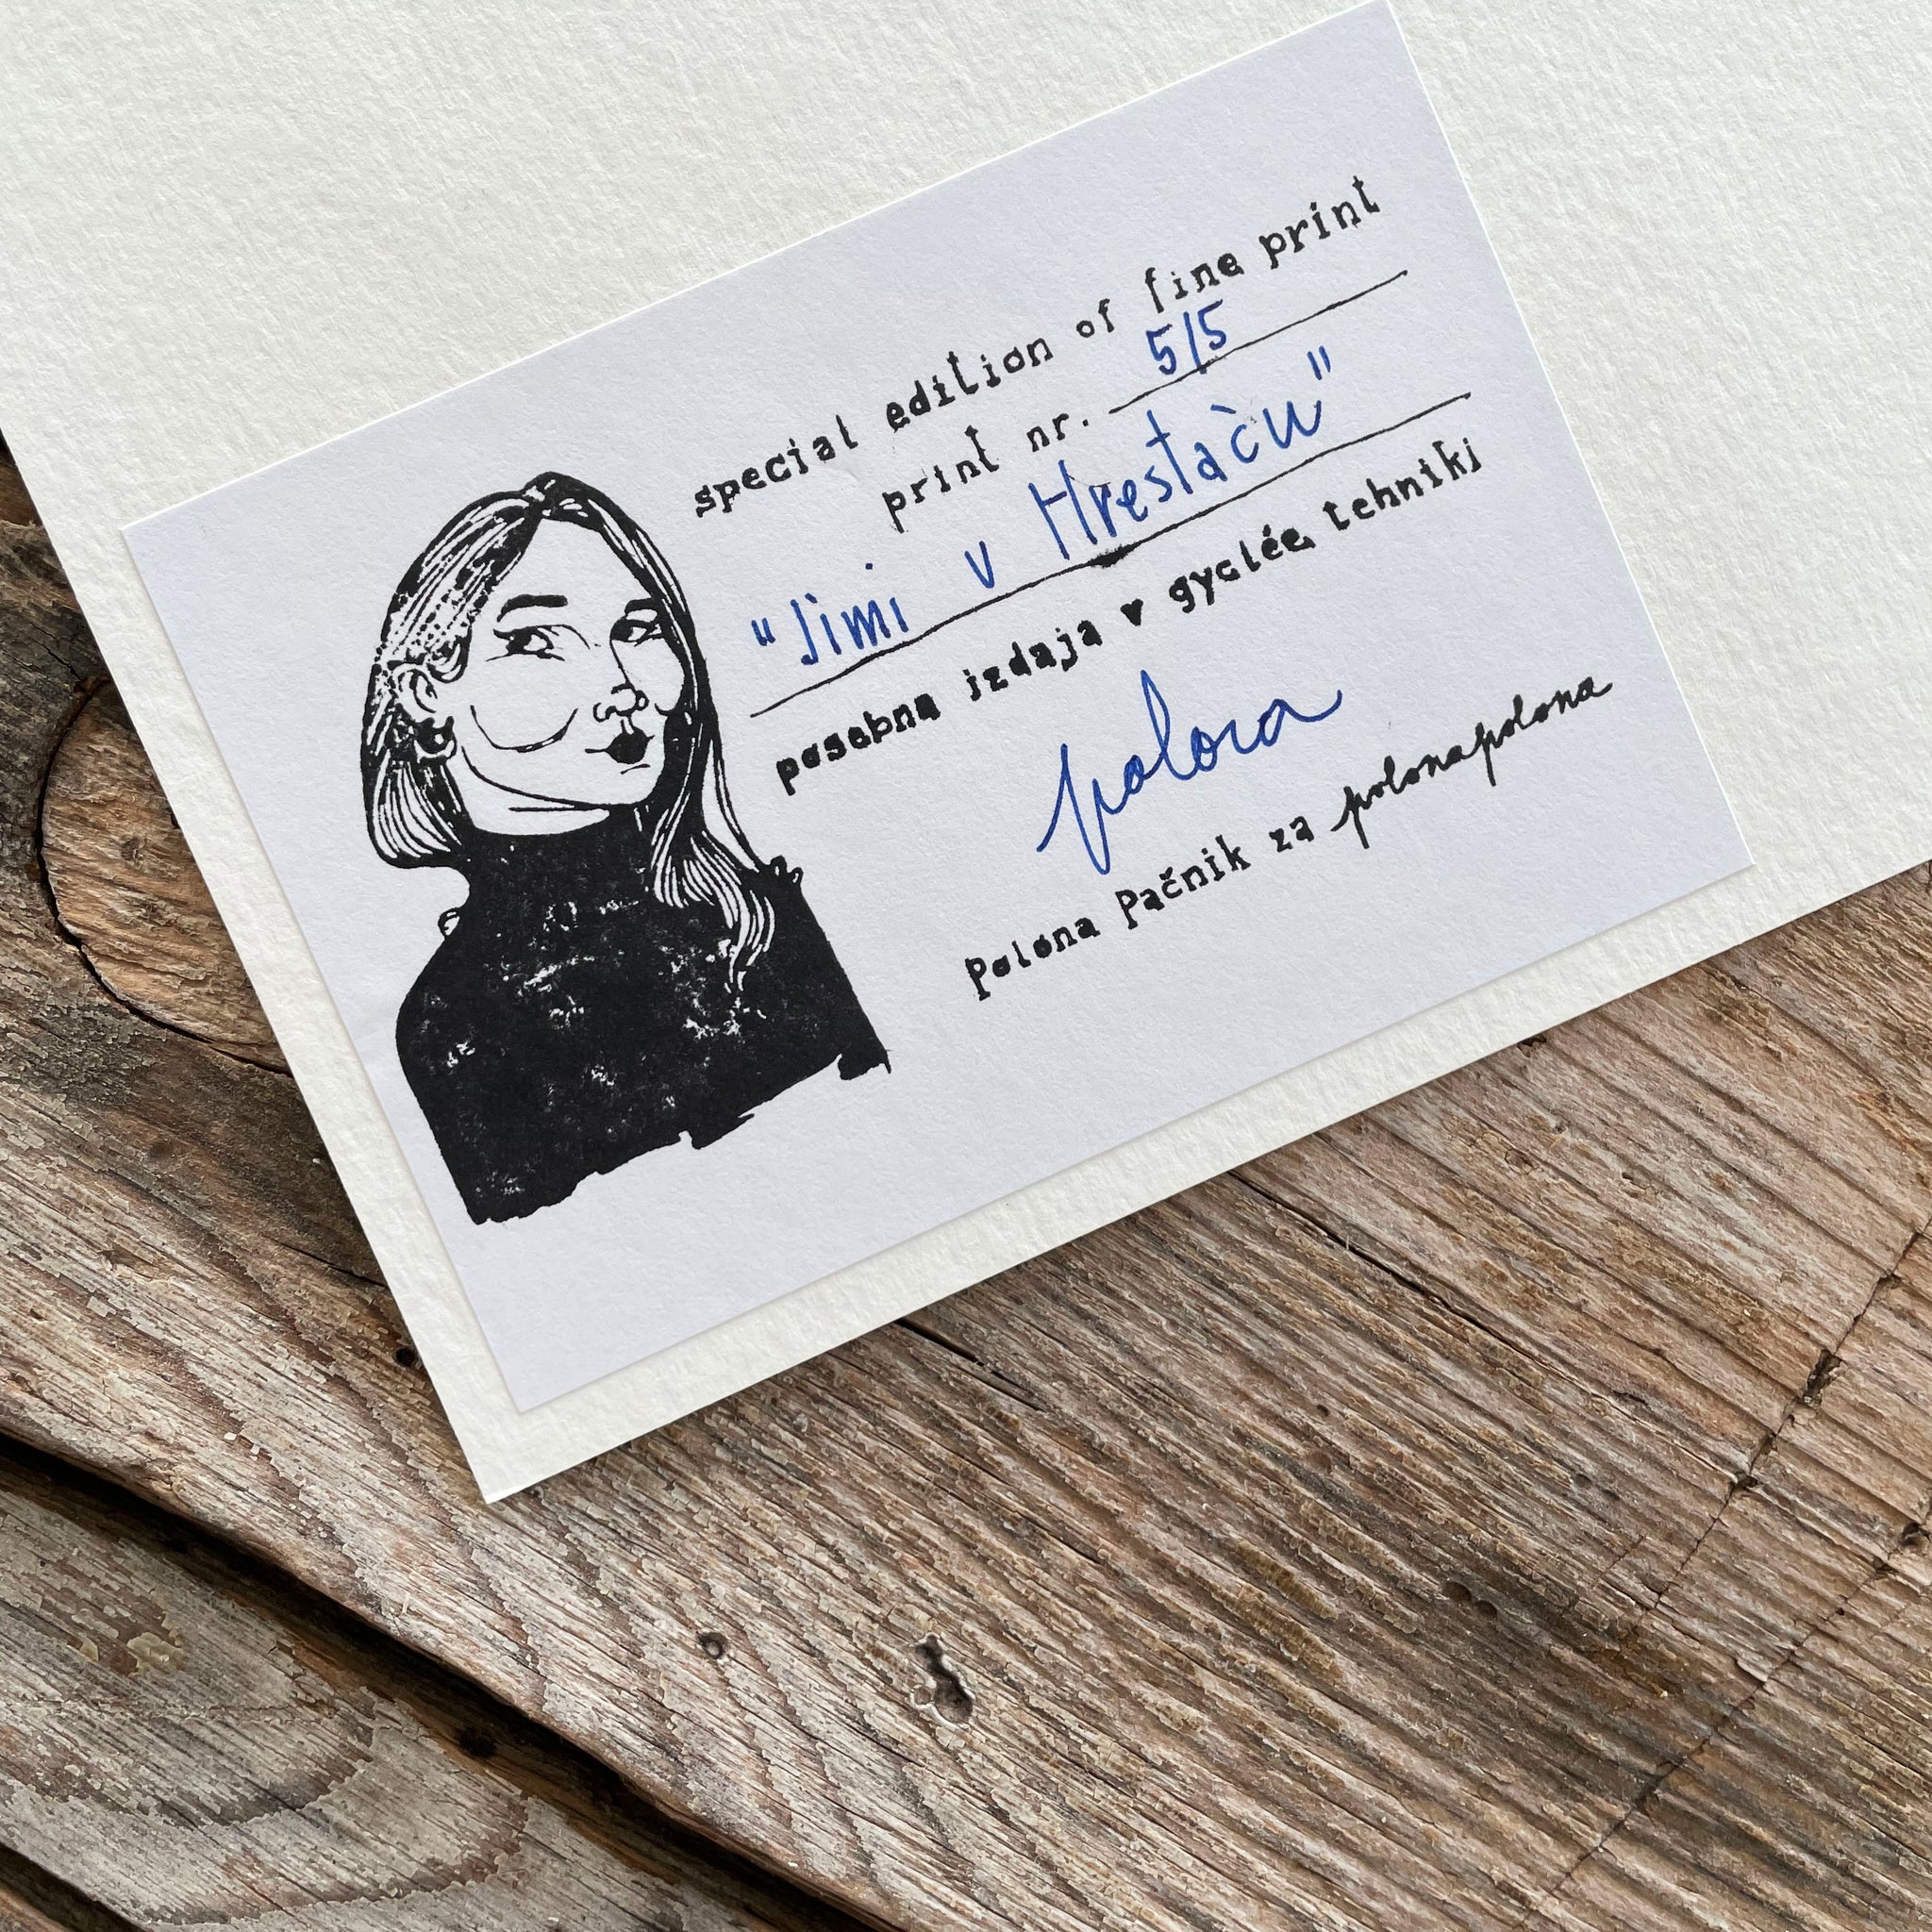 special edition of fine print
print nr. 5/5
"Jimi v Hrestaču"
posebna izdaja v gyclée tehniki
polona
Polona Pačnik za polonapolona